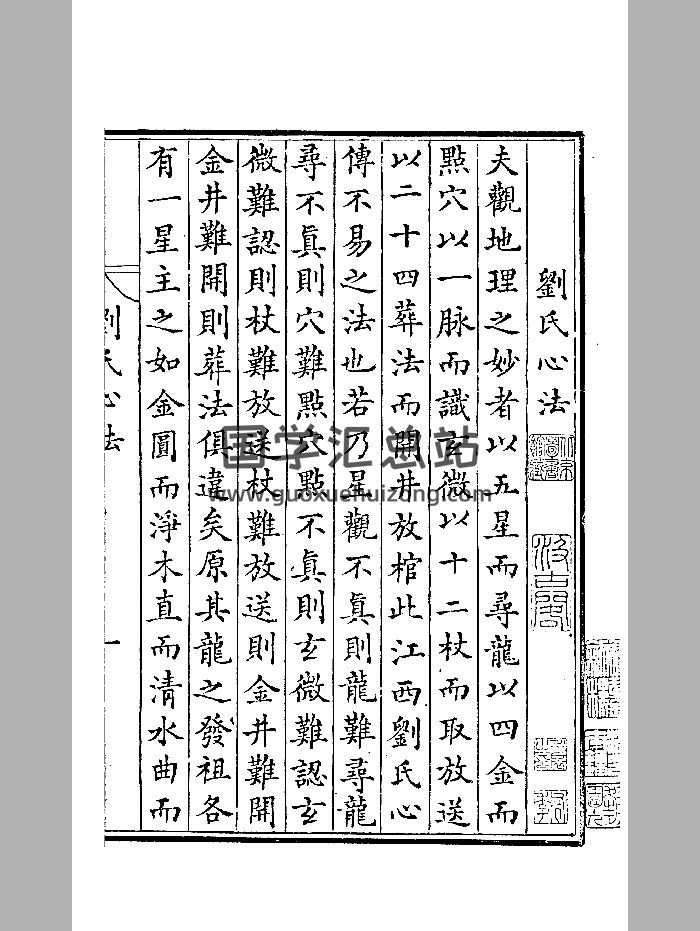 劉氏心法
夫觀地理之妙者以五星而尋龍以四金而
點穴以一脉而識玄微以十二杖而取放送
以二十四葬法而開井放棺此江西劉氏心
傳不易之法也若乃星觀不真則龍難尋龍
尋不真則穴難點穴點不真則玄微難認玄
微難認則杖難放送杖難放送則金井難開
金井難開則葬法俱違矣原其龍之發祖各
有一星主之如金圓而淨木直而清水曲而
劉氏心法
一
国学汇总站
www.guoxuehuizong.com